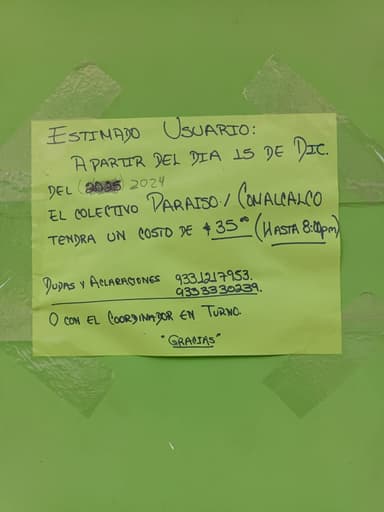 ESTIMADO USUARIO:
APARTIR DEL DIA 15 DE DIC.
DEL (2025) 2024
EL COLECTIVO PARAISO / COMALCALCO
TENDRA UN COSTO DE $35.00 (HASTA 8:00pm)
DUDAS Y ACLARACIONES 9331217953.
9333330239.
O CON EL COORDINADOR EN TURNO.
"GRACIAS"